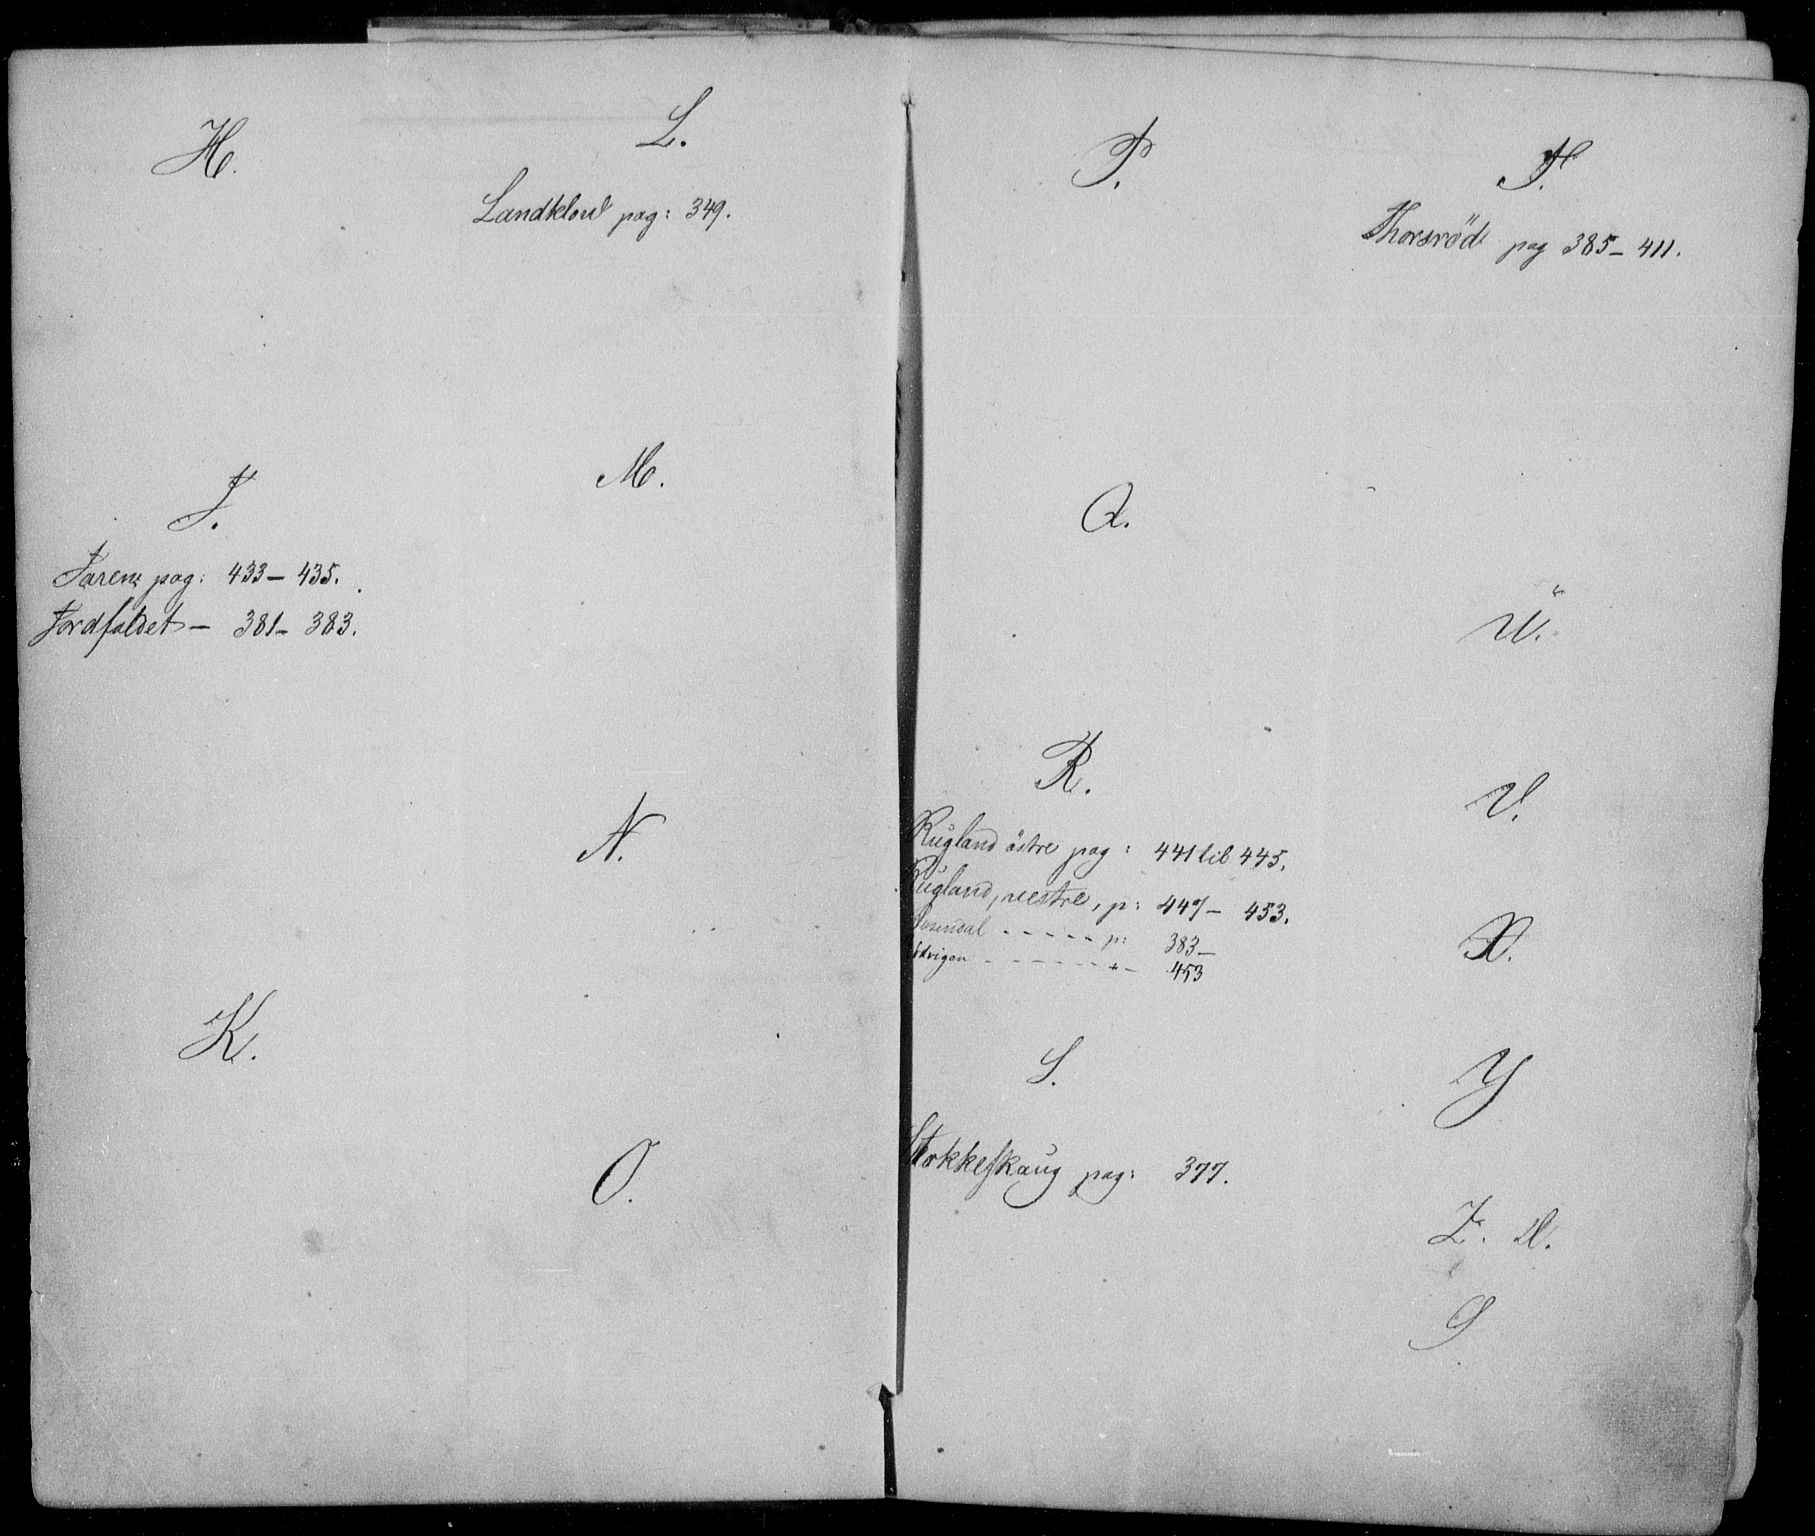 H.
J.
pag: 433 – 435.
Jordfaldet – 381 – 383.
K.
L.
pag: 349.
M.
N.
O.
P.
Q.
R.
Rugland östre pag: 441 til 445.
Rugland, vestre, p: 447 – 453.
p: 383 –
453
S.
Stokkeskaug pag: 377.
T.
Thorsröd pag 385 – 411.
U.
V.
X.
Y
Z. Æ.
Ø